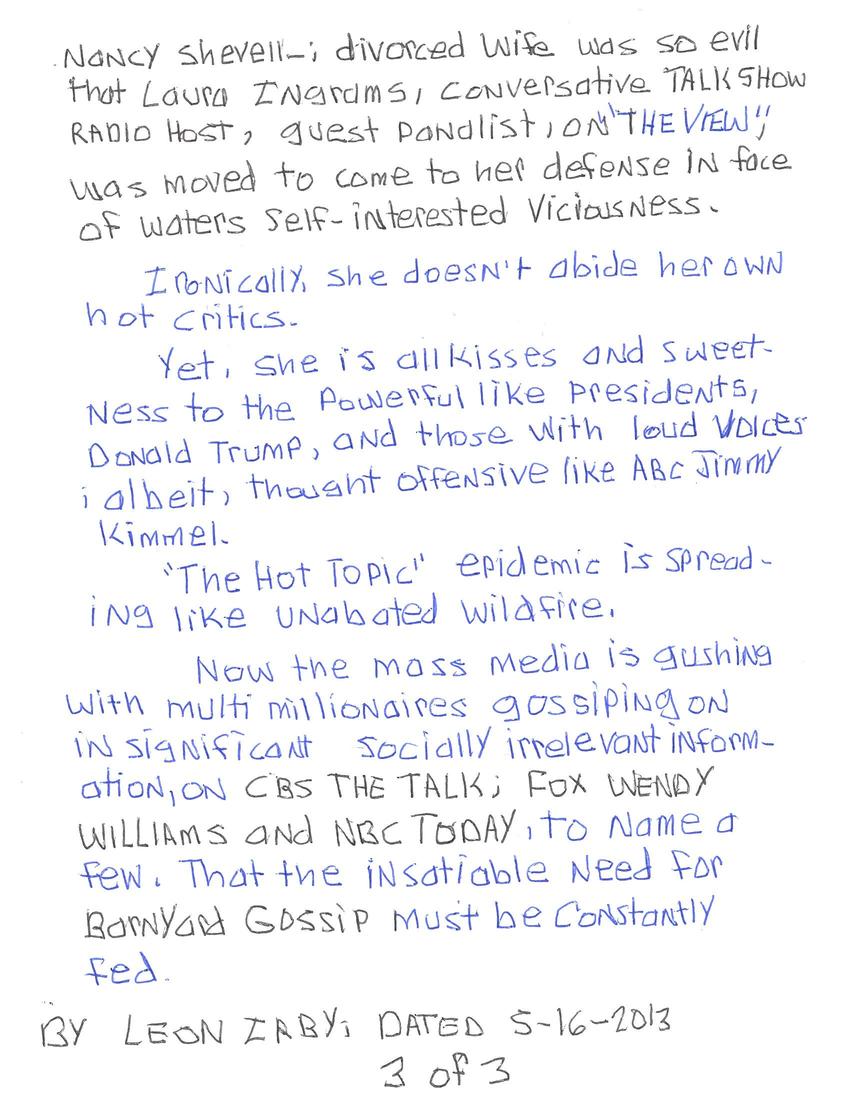 NANCY Shevell-; divorced Wife was so evil
that Laura INgrams, CONVersative TALK SHOW
RADIO HOST, guest pandlist, ON "THE VIEW",
was moved to come to her defense IN face
of waters Self-interested ViciousNess.
IroNically, she doesN't abide her OWN
hot Critics.
Yet, she is all kisses AND sweet-
Ness to the Powerful like presidents,
Donald Trump, AND those with loud Voices
; albeit, thought offensive like ABC Jimmy
Kimmel.
"The Hot TOPIC" epidemic is spread-
iNg like UNabated Wildfire.
Now the mass media is gushing
With multi millioNaires gossipiNg ON
iN sigNificaNt socially irrelevaNt iNform-
atioN, ON CBS THE TALK; FOX WENDY
WILLIAMS aNd NBC TODAY, to Name a
few. That the iNsatiable Need for
BarNYard GossiP Must be CoNstaNtly
fed.
BY LEON IRBY; DATED 5-16-2013
3 of 3